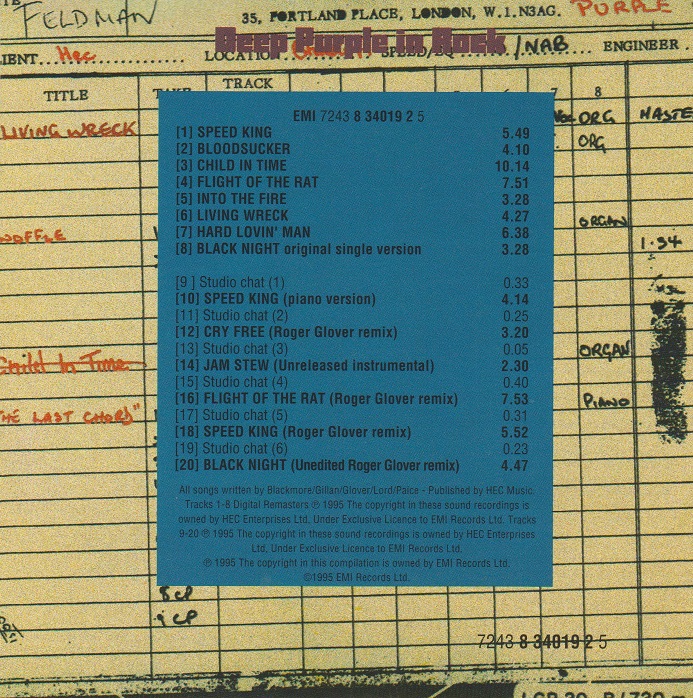 FELDMAN 35, PORTLAND PLACE, LONDON, W.1.N3AG. PURPLE
Deep Purple in Rock
IENT... Hec LOCATION /NAB ENGINEER
TRACK
TITLE TAKE 7 8
LIVING WRECK ORG MASTE
ORG
EMI 7243 8 34019 2 5
[1] SPEED KING 5.49
[2] BLOODSUCKER 4.10
[3] CHILD IN TIME 10.14
[4] FLIGHT OF THE RAT 7.51
[5] INTO THE FIRE 3.28
[6] LIVING WRECK 4.27
[7] HARD LOVIN' MAN 6.38
[8] BLACK NIGHT original single version 3.28
ORGAN
1.34
[9 ] Studio chat (1) 0.33
[10] SPEED KING (piano version) 4.14
[11] Studio chat (2) 0.25
[12] CRY FREE (Roger Glover remix) 3.20
[13] Studio chat (3) 0.05
[14] JAM STEW (Unreleased instrumental) 2.30
[15] Studio chat (4) 0.40
[16] FLIGHT OF THE RAT (Roger Glover remix) 7.53
[17] Studio chat (5) 0.31
[18] SPEED KING (Roger Glover remix) 5.52
[19] Studio chat (6) 0.23
[20] BLACK NIGHT (Unedited Roger Glover remix) 4.47
Child In Time ORGAN
PIANO
HE LAST CHORD"
All songs written by Blackmore/Gillan/Glover/Lord/Paice - Published by HEC Music.
Tracks 1-8 Digital Remasters ℗ 1995 The copyright in these sound recordings is
owned by HEC Enterprises Ltd, Under Exclusive Licence to EMI Records Ltd. Tracks
9-20 ℗ 1995 The copyright in these sound recordings is owned by HEC Enterprises
Ltd, Under Exclusive Licence to EMI Records Ltd.
℗ 1995 The copyright in this compilation is owned by EMI Records Ltd.
©1995 EMI Records Ltd.
7243 8 34019 2 5